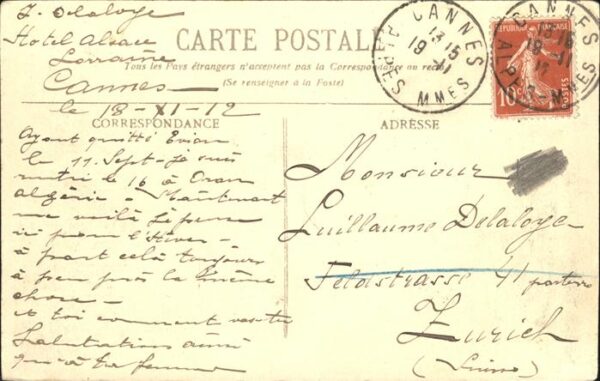 J. Delaloye
Hotel Alsace
Lorraine
Cannes
le 18-XI-12
CARTE POSTALE
Tous les Pays étrangers n'acceptent pas la Correspondance au recto
(Se renseigner à la Poste)
CORRESPONDANCE
Ayant quitté Evian
le 11 Sept. Je suis
rentré le 16 à Oran
Algérie - Maintenant
me voilà
ici pour l'hiver -
à part cela toujours
à peu près la même
chose -
et toi comment vas-tu
Salutations ainsi
qu'à ta femme
ADRESSE
Monsieur
Guillaume Delaloye
Feldstrasse 41 parterre
Zurich
(Suisse)
CANNES
13 15
19 - 11
ALPES MMES
CANNES
ALPES-MMES
10c
POSTES